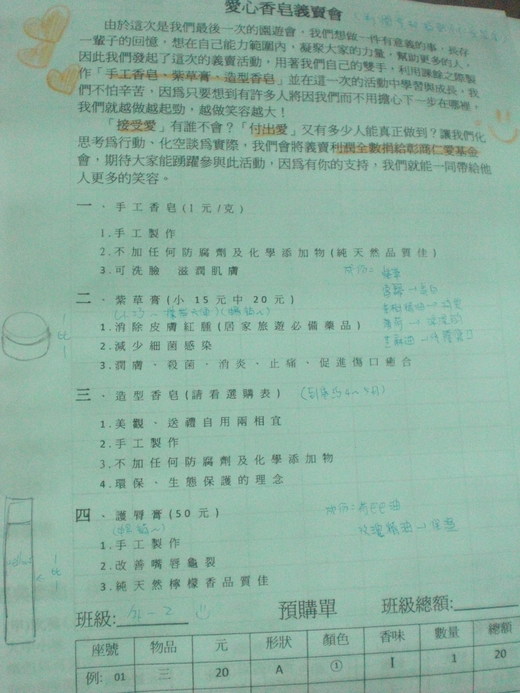 愛心香皂義賣會
由於這次是我們最後一次的園遊會，我們想做一件有意義的事，長存
一輩子的回憶，想在自己能力範圍內，凝聚大家的力量，幫助更多的人，
因此我們發起了這次的義賣活動，用著我們自己的雙手，利用課餘之際製
作「手工香皂、紫草膏、造型香皂」並在這一次的活動中學習與成長，我
們不怕辛苦，因爲只要想到有許多人將因我們而不用擔心下一步在哪裡，
我們就越做越起勁，越做笑容越大！
「接受愛」有誰不會？「付出愛」又有多少人能真正做到？讓我們化
思考爲行動、化空談爲實際，我們會將義賣利潤全數捐給彰商仁愛基金
會，期待大家能踴躍參與此活動，因爲有你的支持，我們就能一同帶給他
人更多的笑容。
一、手工香皂(1元/克)
1.手工製作
2.不加任何防腐劑及化學添加物(純天然品質佳)
3.可洗臉 滋潤肌膚
二、紫草膏(小 15元中 20元)
1.消除皮膚紅腫(居家旅遊必備藥品)
2.減少細菌感染
3.潤膚、殺菌、消炎、止痛、促進傷口癒合
三、造型香皂(請看選購表)
1.美觀、送禮自用兩相宜
2.手工製作
3.不加任何防腐劑及化學添加物
4.環保、生態保護的理念
四、護唇膏(50元)
1.手工製作
2.改善嘴唇龜裂
3.純天然檸檬香品質佳
班級: 預購單 班級總額:
座號 物品 元 形狀 顏色 香味 數量 總額
例: 01 三 20 A ① I 1 20